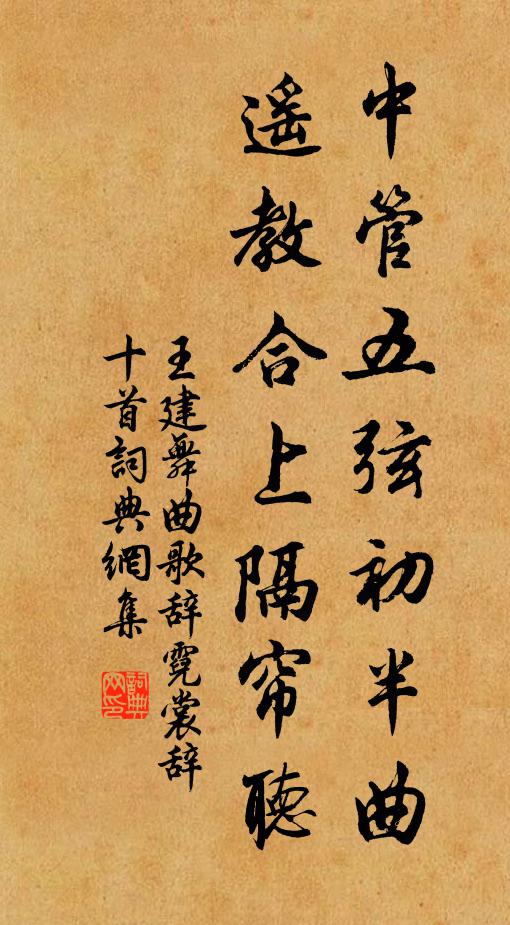 中管五弦初半曲
遥教合上隔帘聽
王建舞曲歌辞霓裳辞
十首詞典網集
詞典网印